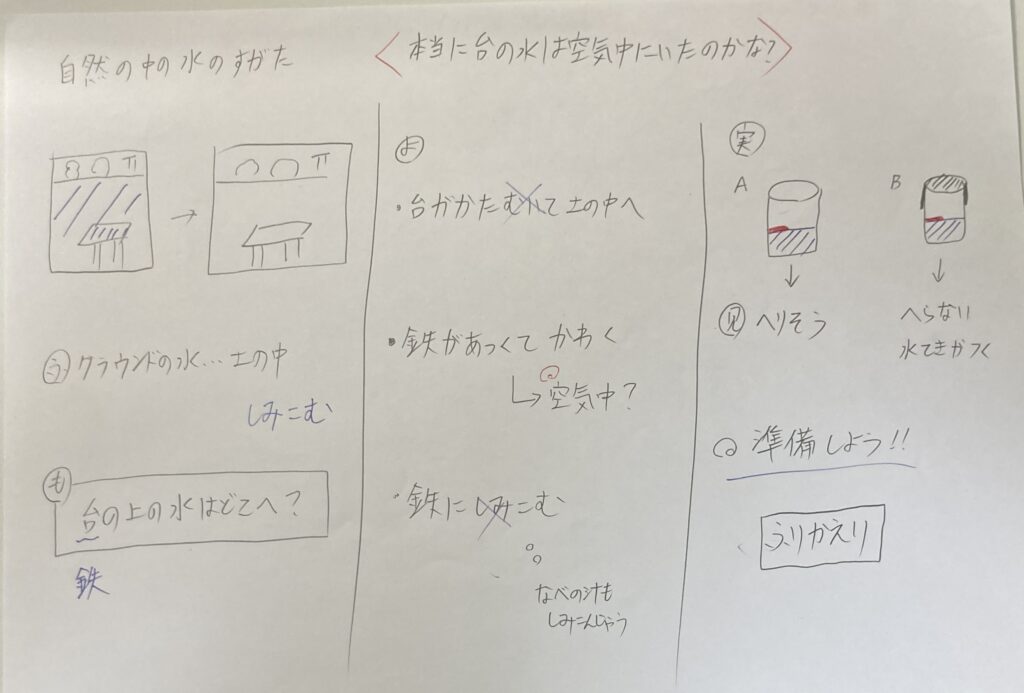 自然の中の水のすがた
<本当に台の水は空気中にいたのかな?>
→
う グラウンドの水…土の中
しみこむ
も
台の上の水はどこへ?
鉄
よ
・台がかたむいて土の中へ
・鉄があつくて かわく
↳ 空気中?
・鉄にしみこむ
なべの汁も
しみこんじゃう
実
A
B
↓
↓
見 へりそう
へらない
水てきがつく
準備しよう!!
ふりかえり